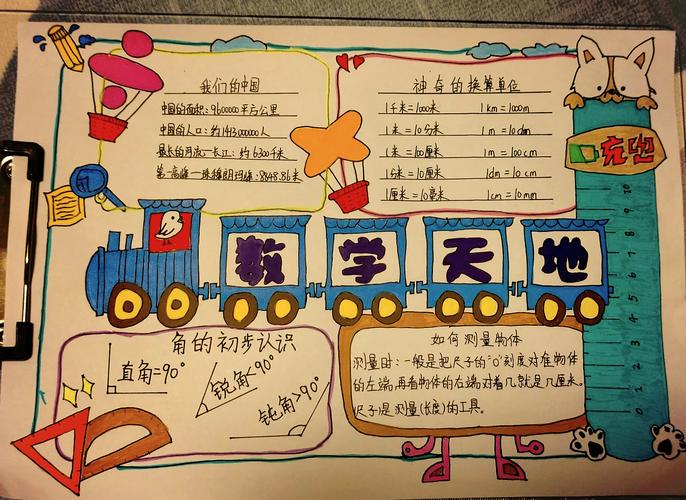 我们的中国
中国的面积:9600000平方公里
中国的人口:约1413000000人
最长的河流—长江:约6300千米
第一高峰—珠穆朗玛峰:8848.86米
神奇的换算单位
1千米=1000米 1km=1000m
1米=10分米 1m=10dm
1米=100厘米 1m=100cm
1分米=10厘米 1dm=10cm
1厘米=10毫米 1cm=10mm
数学天地
角的初步认识
直角=90°
锐角<90°
钝角>90°
如何测量物体
测量时:一般是把尺子的"0"刻度对准物体
的左端,再看物体的右端对着几就是几厘米。
尺子是测量(长度)的工具。
10
9
8
7
6
5
4
3
2
1
0